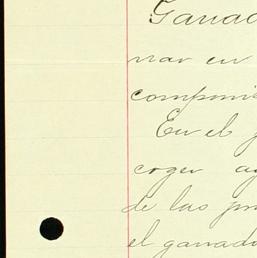 Ganad
nar en
compromis
En el p
coger ag
de las pr
el ganado